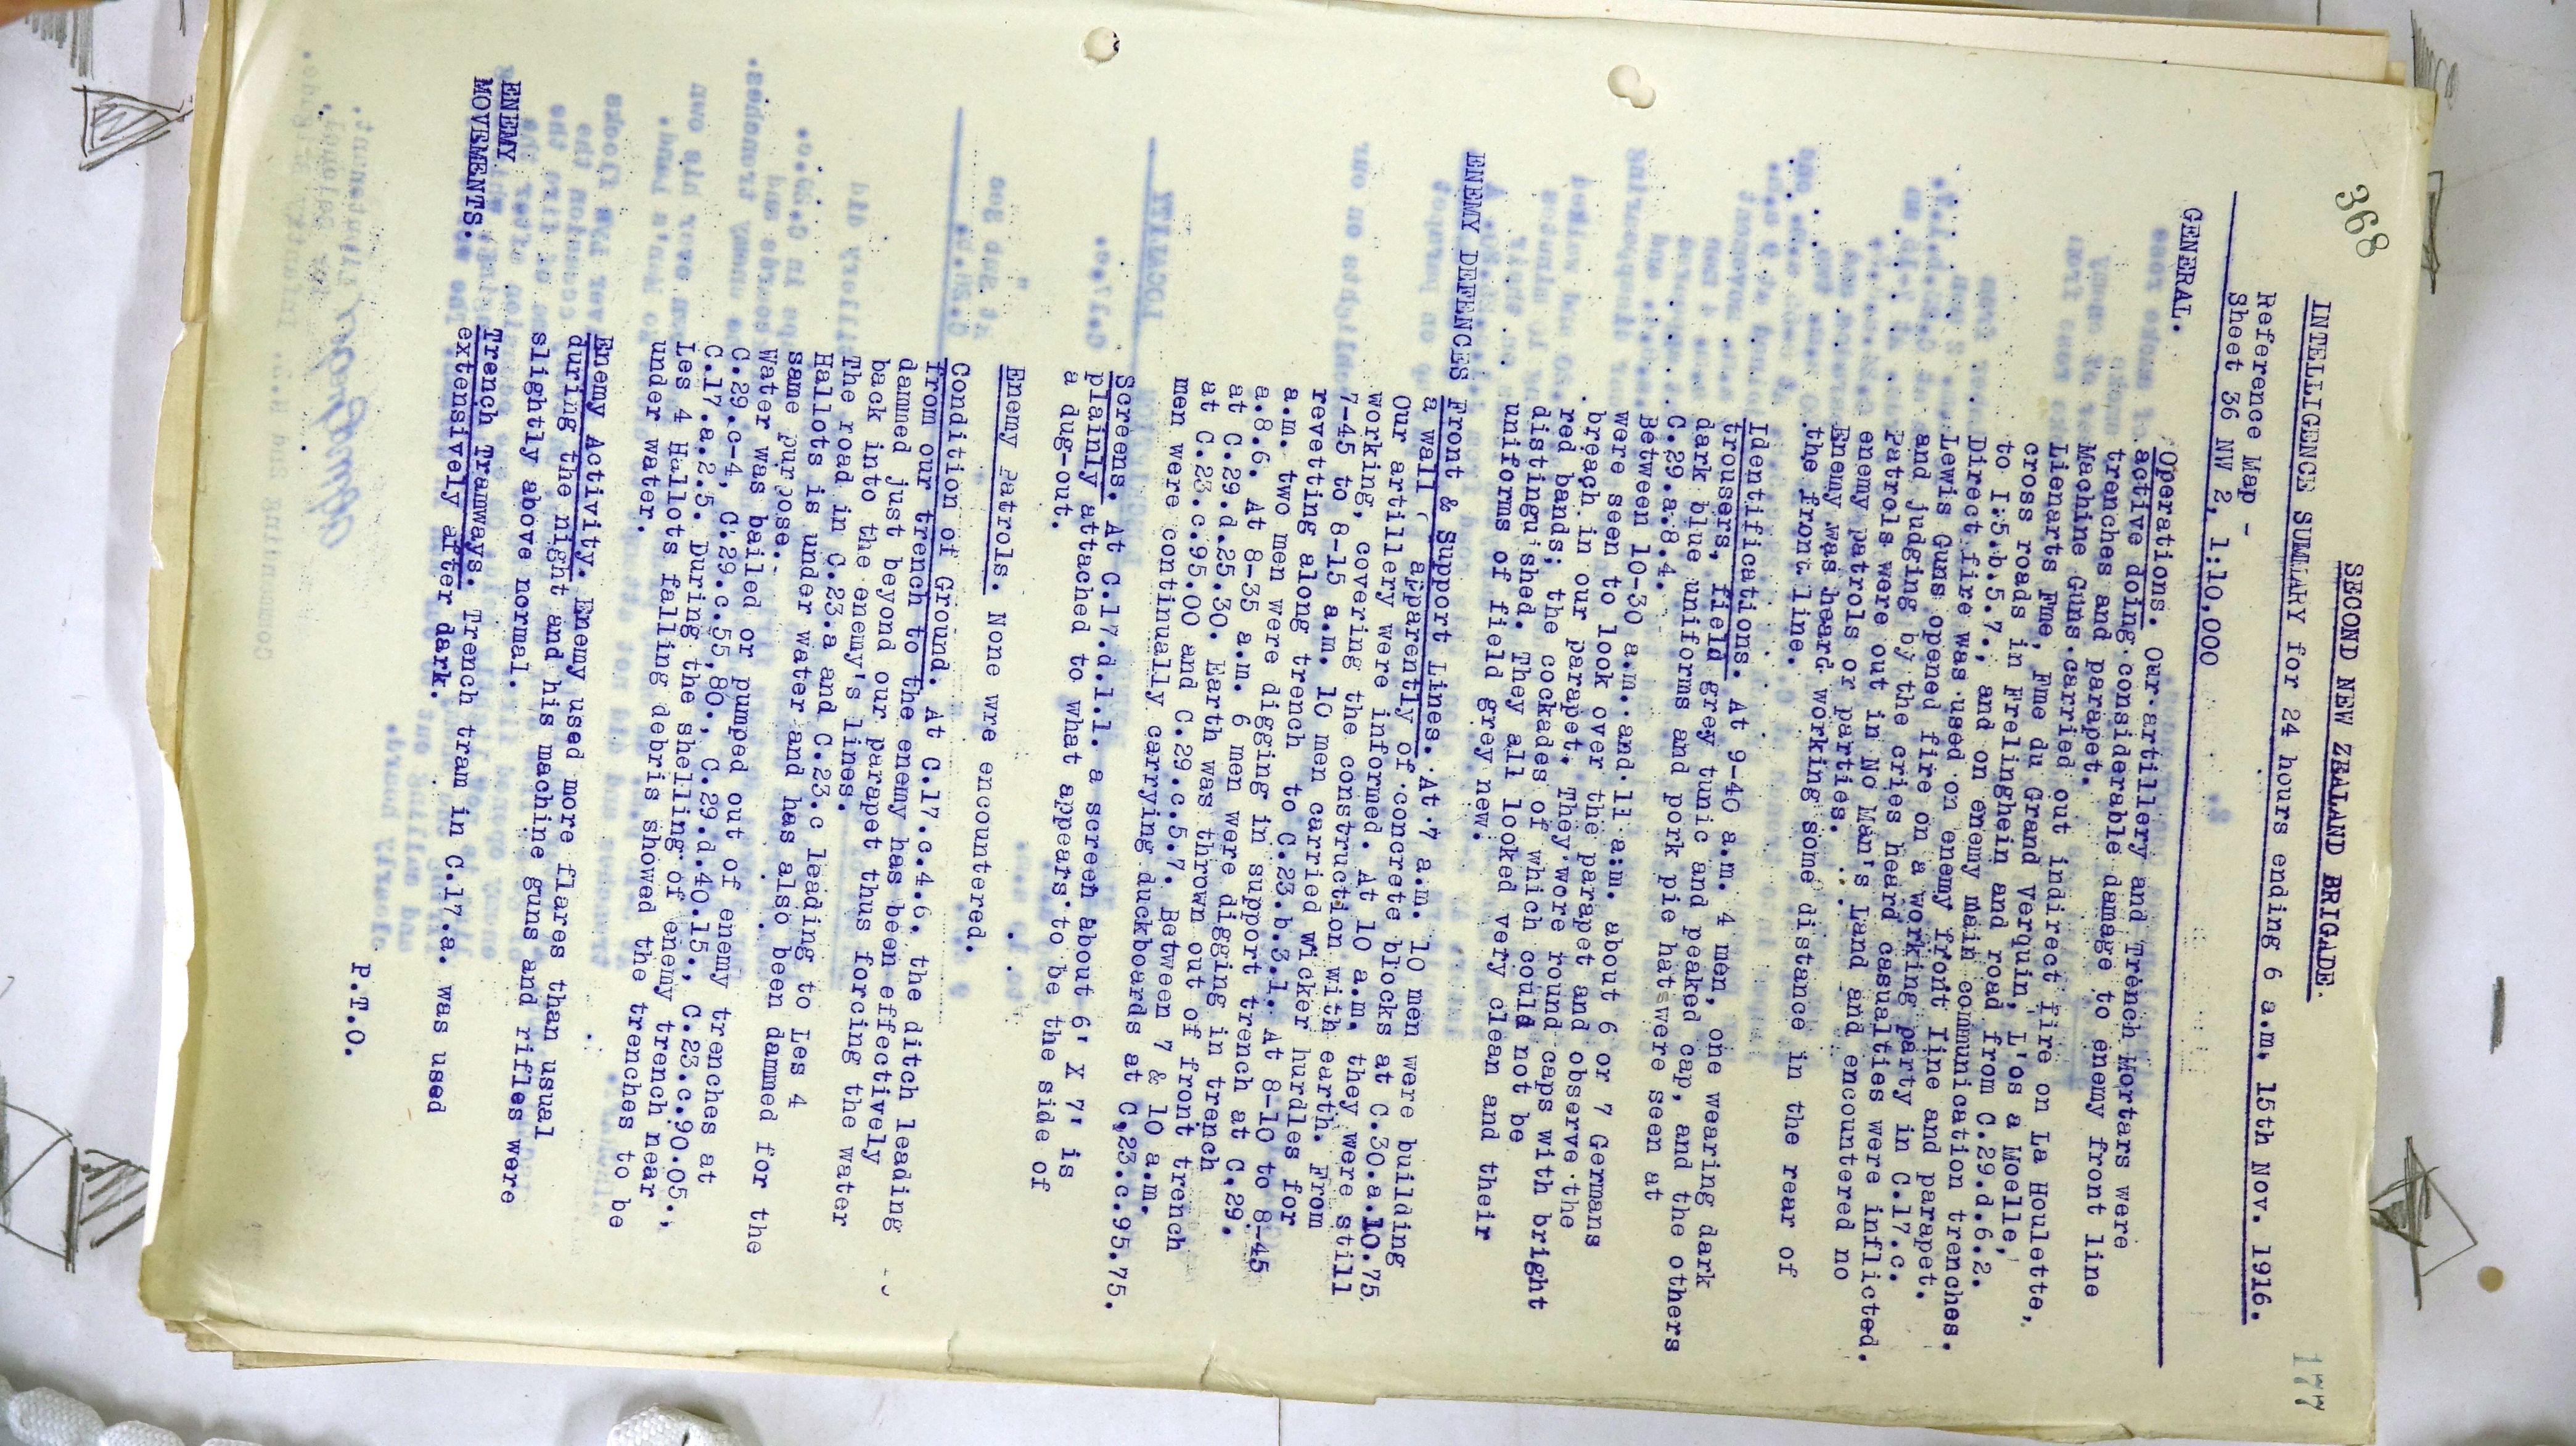 368
177
SECOND NEW ZEALAND BRIGADE.
INTELLIGENCE SUMMARY for 24 hours ending 6 a.m. 15th Nov. 1916.
Reference Map -
Sheet 36 NW 2, 1:10,000
GENERAL.
Operations. Our artillery and Trench Mortars were
active doing considerable damage to enemy front line
trenches and parapet.
Machine Guns carried out indirect fire on La Houlette,
Lienarts Fme, Fme du Grand Verquin, L'os a Moelle,
cross roads in Frelinghein and road from C.29.d.6.2.
to I.5.b.5.7., and on enemy main communication trenches.
Direct fire was used on enemy front line and parapet.
Lewis Guns opened fire on a working party in C.17.c.
and judging by the cries heard casualties were inflicted.
Patrols were out in No Man's Land and encountered no
enemy patrols or parties.
Enemy was heard working some distance in the rear of
the front line.
Identifications. At 9-40 a.m. 4 men, one wearing dark
trousers, field grey tunic and peaked cap, and the others
dark blue uniforms and pork pie hats were seen at
C.29.a.8.4.
Between 10-30 a.m. and 11 a.m. about 6 or 7 Germans
were seen to look over the parapet and observe the
breach in our parapet. They wore round caps with bright
red bands; the cockades of which could not be
distinguished. They all looked very clean and their
uniforms of field grey new.
ENEMY DEFENCES
Front & Support Lines. At 7 a.m. 10 men were building
a wall ( apparently of concrete blocks at C.30.a.10.75.
Our artillery were informed. At 10 a.m. they were still
working, covering the construction with earth. From
7-45 to 8-15 a.m. 10 men carried wicker hurdles for
revetting along trench to C.23.b.3.1. At 8-10 to 8-45
a.m. two men were digging in support trench at C.29.
a.8.6. At 8-35 a.m. 6 men were digging in trench
at C.29.d.25.30. Earth was thrown out of front trench
at C.23.c.95.00 and C.29.c.5.7. Between 7 & 10 a.m.
men were continually carrying duckboards at C.23.c.95.75.
Screens. At C.17.d.1.1. a screen about 6' X 7' is
plainly attached to what appears to be the side of
a dug-out.
Enemy Patrols. None wre encountered.
Condition of Ground. At C.17.c.4.6. the ditch leading
from our trench to the enemy has been effectively
dammed just beyond our parapet thus forcing the water
back into the enemy's lines.
The road in C.23.a and C.23.c leading to Les 4
Hallots is under water and has also been dammed for the
same purpose.
Water was bailed or pumped out of enemy trenches at
C.29.c-4, C.29.c.55,80., C.29.d.40.15., C.23.c.90.05.,
C.17.a.2.5. During the shelling of enemy trench near
Les 4 Hallots falling debris showed the trenches to be
under water.
ENEMY
MOVEMENTS.
Enemy Activity. Enemy used more flares than usual
during the night and his machine guns and rifles were
slightly above normal.
Trench Tramways. Trench tram in C.17.a. was used
extensively after dark.
P.T.O.